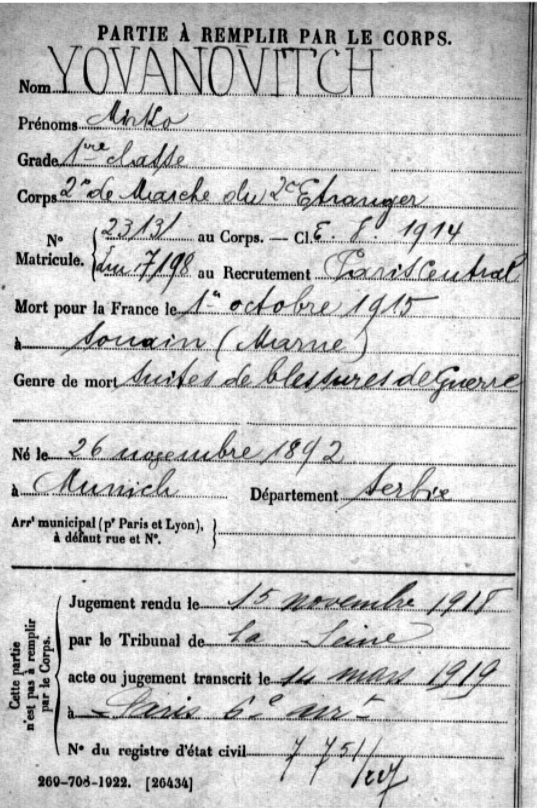 PARTIE À REMPLIR PAR LE CORPS.
Nom YOVANOVITCH
Prénoms Mirko
Grade 1re classe
Corps 2e de Marche du 2e Etranger
N° Matricule. 23131 au Corps. — Cl. E. V. 1914
Lm 7/98 au Recrutement Paris Central
Mort pour la France le 1er octobre 1915
à Souain (Marne)
Genre de mort Suites de blessures de Guerre
Né le 26 novembre 1892
à Munich Département Serbie
Arrt municipal (pr Paris et Lyon),
à défaut rue et N°.
Cette partie
n'est pas à remplir
par le Corps.
Jugement rendu le 15 novembre 1918
par le Tribunal de La Seine
acte ou jugement transcrit le mars 1919
à Paris 6e arrt
N° du registre d'état civil
269-708-1922. [26434]